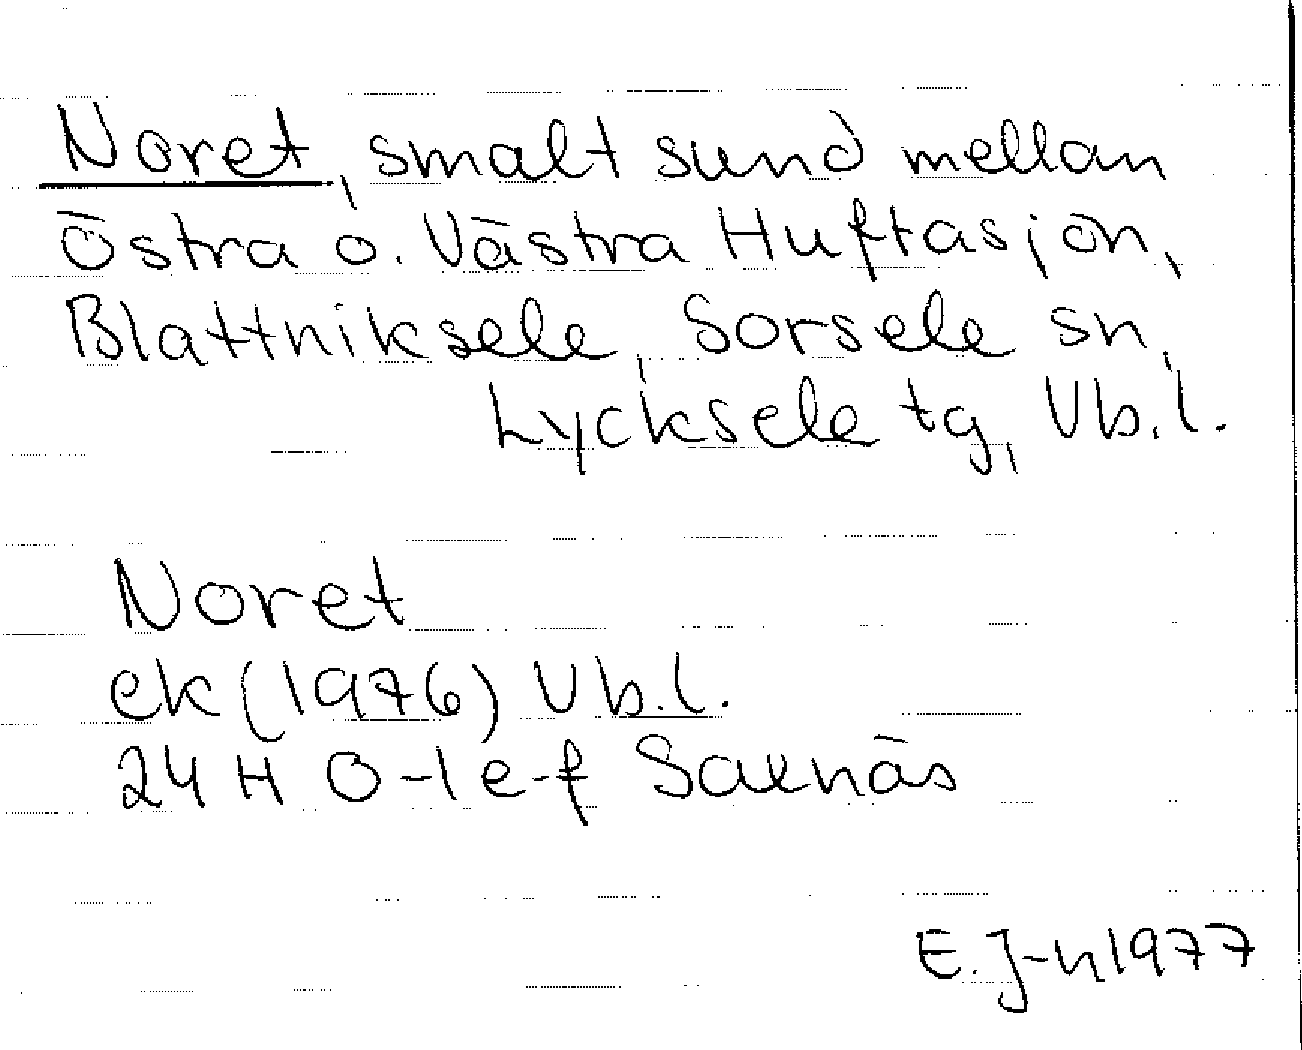 Noret, smalt sund mellan
Östra o. Västra Huftasjön,
Blattniksele, Sorsele sn,
Lycksele tg, Vb.l.
Noret
ek (1976) Vb.l.
24 H 0-1 e-f Saxnäs
E. J-n 1977